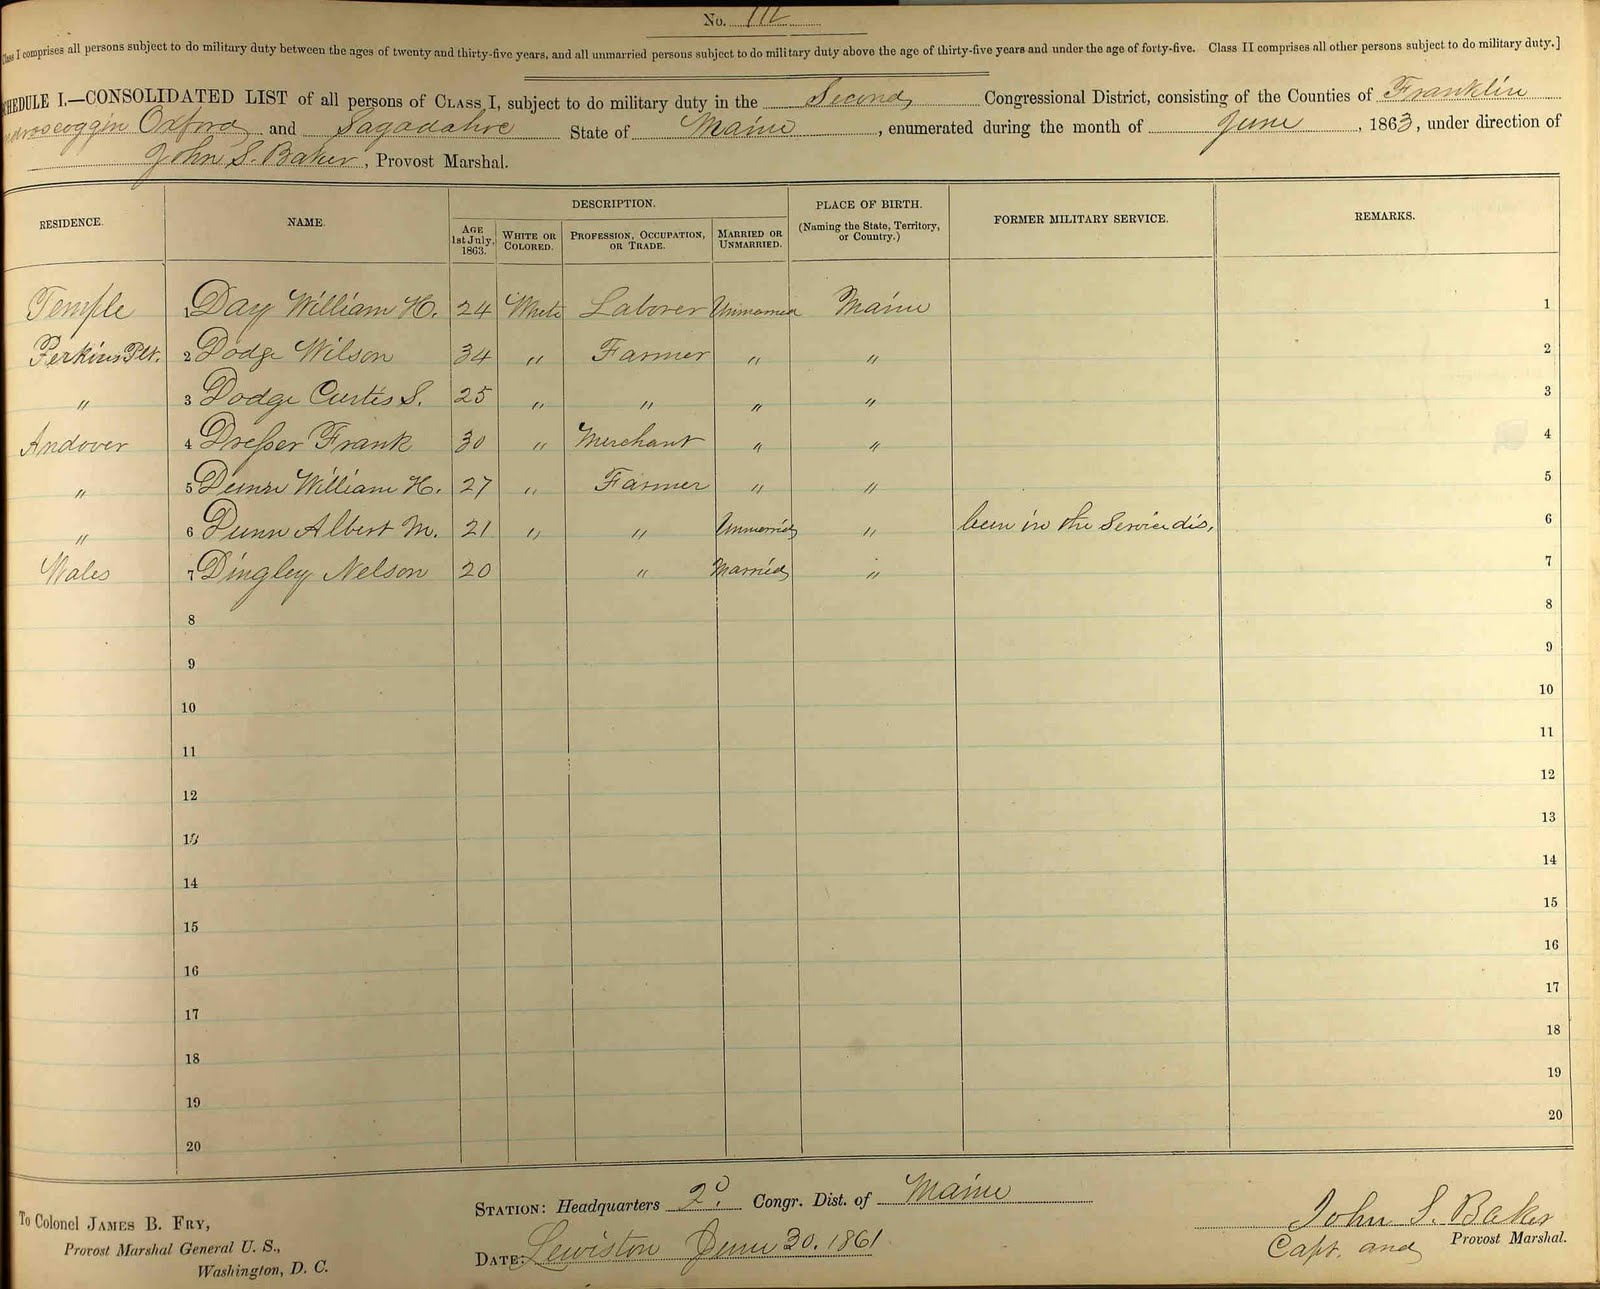 No. 112
Class I comprises all persons subject to do military duty between the ages of twenty and thirty-five years, and all unmarried persons subject to do military duty above the age of thirty-five years and under the age of forty-five. Class II comprises all other persons subject to do military duty.]
SCHEDULE I.—CONSOLIDATED LIST of all persons of CLASS I, subject to do military duty in the Second Congressional District, consisting of the Counties of Franklin
Androscoggin Oxford and Sagadahoc State of Maine, enumerated during the month of June, 1863, under direction of
John S. Baker, Provost Marshal.
RESIDENCE. NAME. DESCRIPTION. PLACE OF BIRTH. (Naming the State, Territory, or Country.) FORMER MILITARY SERVICE. REMARKS.
AGE 1st July, 1863. WHITE OR COLORED. PROFESSION, OCCUPATION, OR TRADE. MARRIED OR UNMARRIED.
Temple 1 Day William H. 24 White Laborer Unmarried Maine 1
Perkins Plt. 2 Dodge Wilson 34 " Farmer " " 2
" 3 Dodge Curtis S. 25 " " " " 3
Andover 4 Dresser Frank 30 " Merchant " " 4
" 5 Dunn William H. 27 " Farmer " " 5
" 6 Dunn Albert M. 21 " " Unmarried " been in the Service dis. 6
Wales 7 Dingley Nelson 20 " Married " 7
8 8
9 9
10 10
11 11
12 12
13 13
14 14
15 15
16 16
17 17
18 18
19 19
20 20
To Colonel JAMES B. FRY,
Provost Marshal General U. S.,
Washington, D. C.
STATION: Headquarters 2d. Congr. Dist. of Maine
DATE: Lewiston June 30. 1861
John S. Baker
Capt. and Provost Marshal.